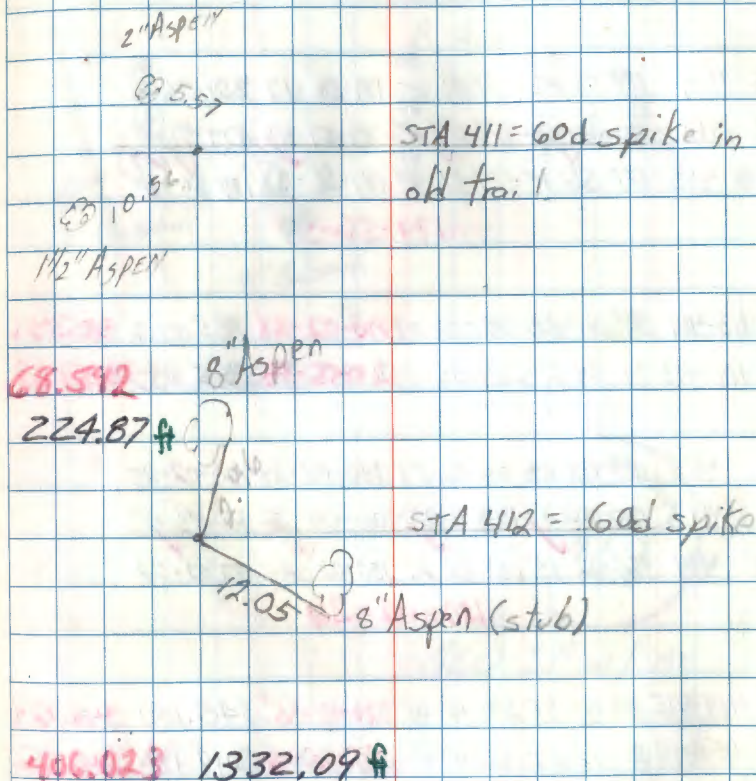 2" Aspen
5.57
STA 411 = 60d spike in
old trail
10.56
1 1/2" ASPEN
8" Aspen
68.592
224.87 ft
STA 412 = 60d spike
12.05
8" Aspen (stub)
406.023 1332.09 ft